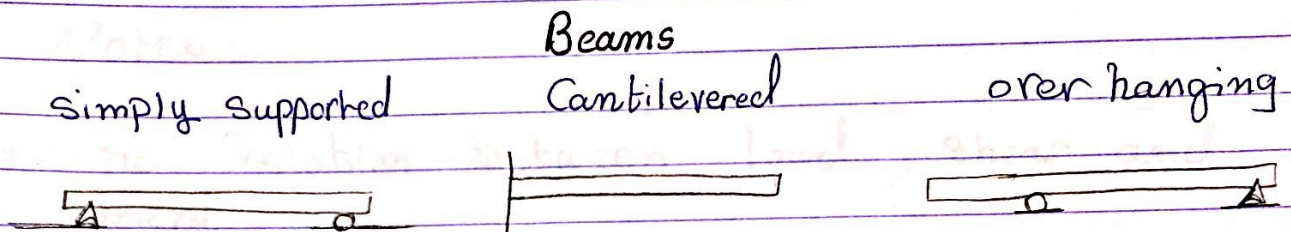 Beams
simply supported Cantilevered over hanging